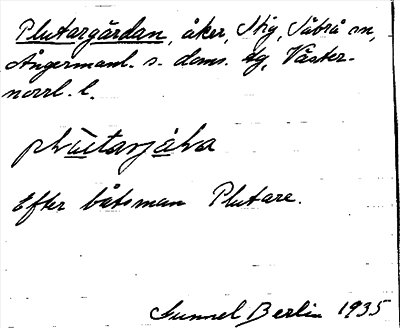 Plutargärdan, åker, Stig, Säbrå sn,
Ångermanl. s. doms. sg, Väster-
norrl. l.
Efter båtsman Plutare.
Gunnel Berlin 1935